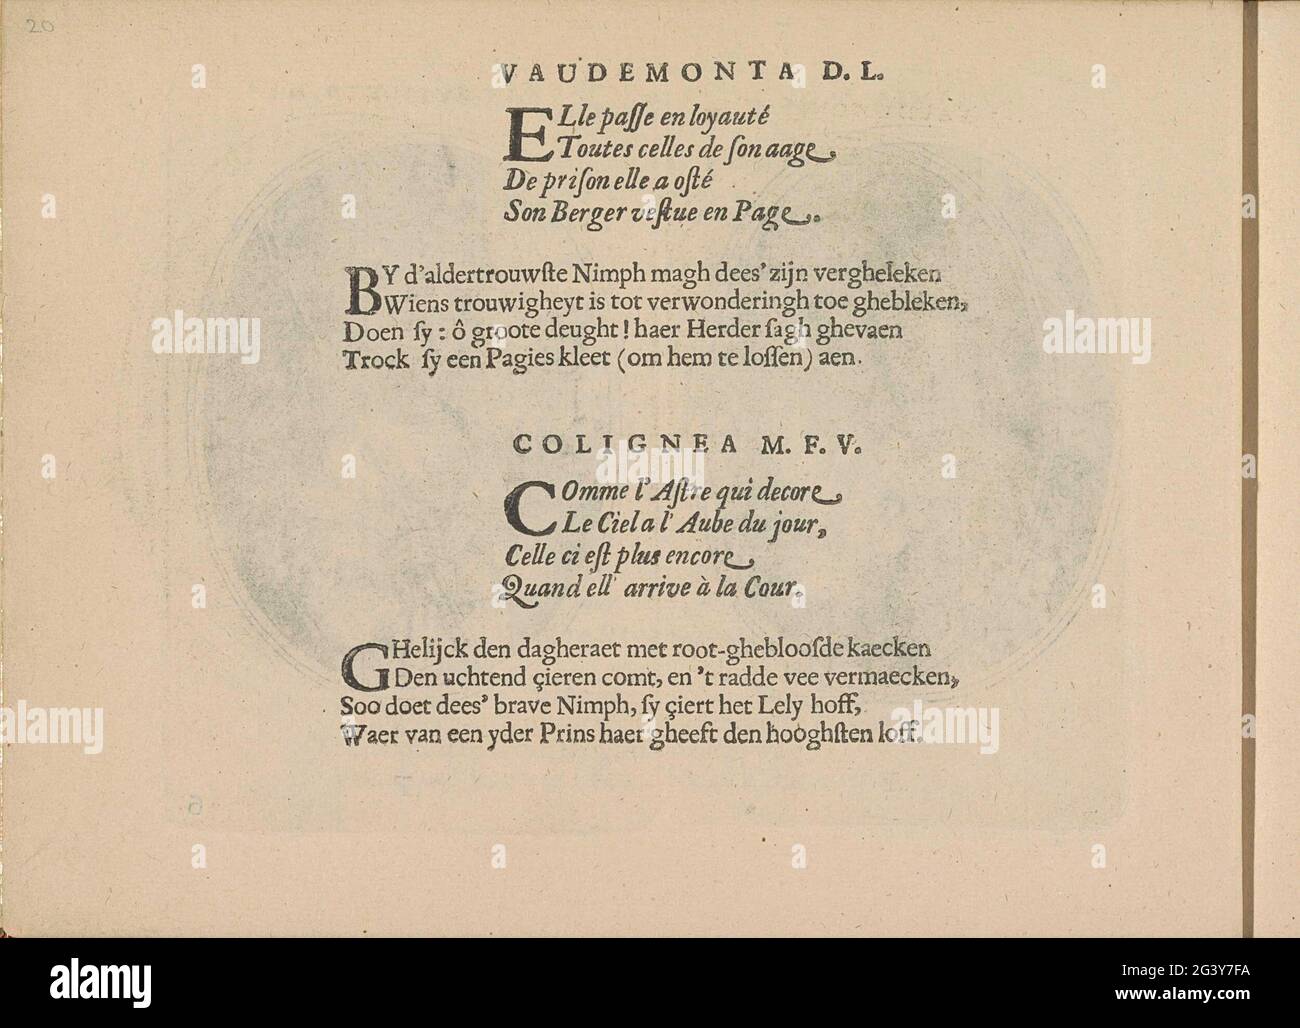 20
VAUDEMONTA D. L.
ELle paſſe en loyauté
Toutes celles de ſon aage,
De priſon elle a oſté
Son Berger veſtue en Page.
BY d'aldertrouwſte Nimph magh dees' zijn vergheleken
Wiens trouwigheyt is tot verwonderingh toe ghebleken,
Doen ſy : ô groote deught ! haer Herder ſagh ghevaen
Trock ſy een Pagies kleet (om hem te loſſen) aen.
COLIGNEA M. F. V.
COmme l'Aſtre qui decore,
Le Ciel a l'Aube du jour,
Celle ci eſt plus encore,
Quand ell' arrive à la Cour.
GHelijck den dagheraet met root-ghebloofde kaecken
Den uchtend çieren comt, en 't radde vee vermaecken,
Soo doet dees' brave Nimph, ſy çiert het Lely hoff,
Waer van een yder Prins haer gheeft den hooghſten loff.
alamy
Image ID: 2G3Y7FA
www.alamy.com